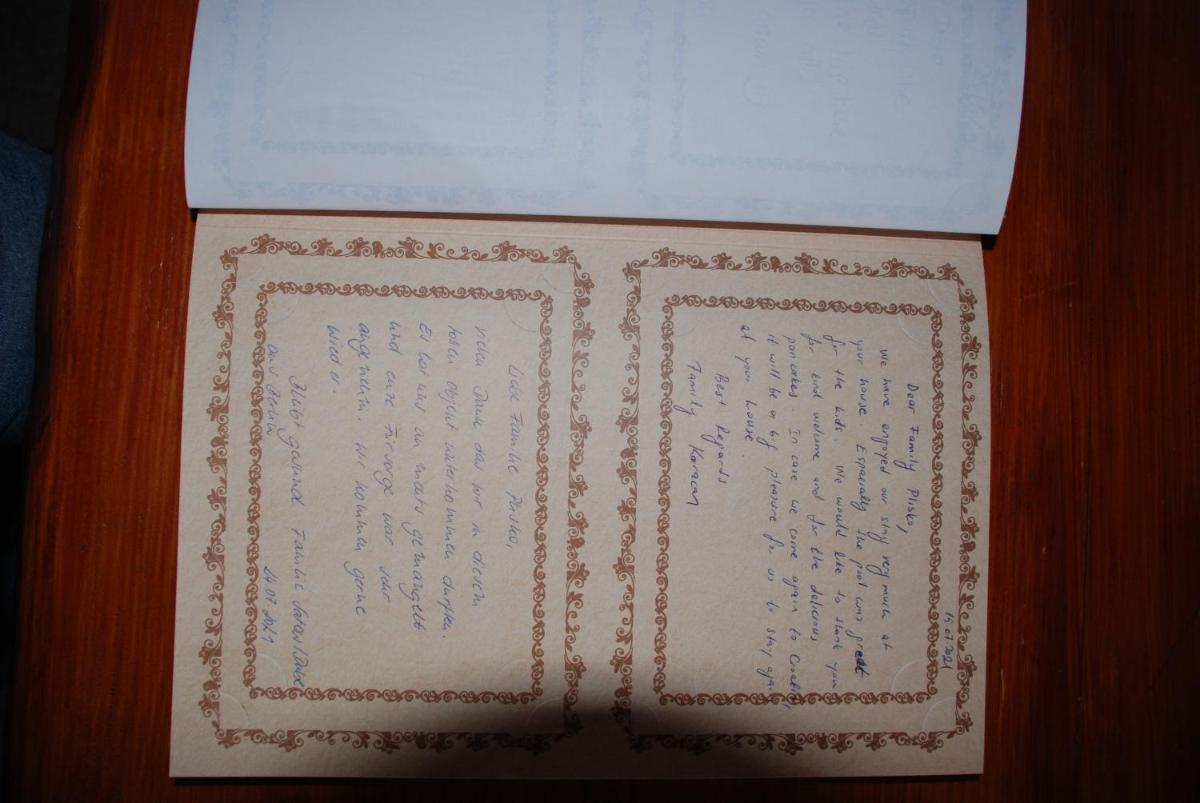 15.07.2021
Dear Family Plisko,
We have enjoyed our stay very much at
your house. Especially the pool was great
for the kids. We would like to thank you
for kind welcome and for the delicious
pancakes. In case we come again to Croatia,
it will be a big pleasure for us to stay again
at your house.
Best Regards
Family Karacan
Liebe Familie Plisko,
vielen Dank das wir in diesem
tollen Objekt unterkommen durften.
Es hat uns an nichts gemangelt
und eure Fürsorge war sehr
angenehm. Wir kommen gerne
wieder.
Bleibt gesund Familie
aus Berlin 24.07.2021